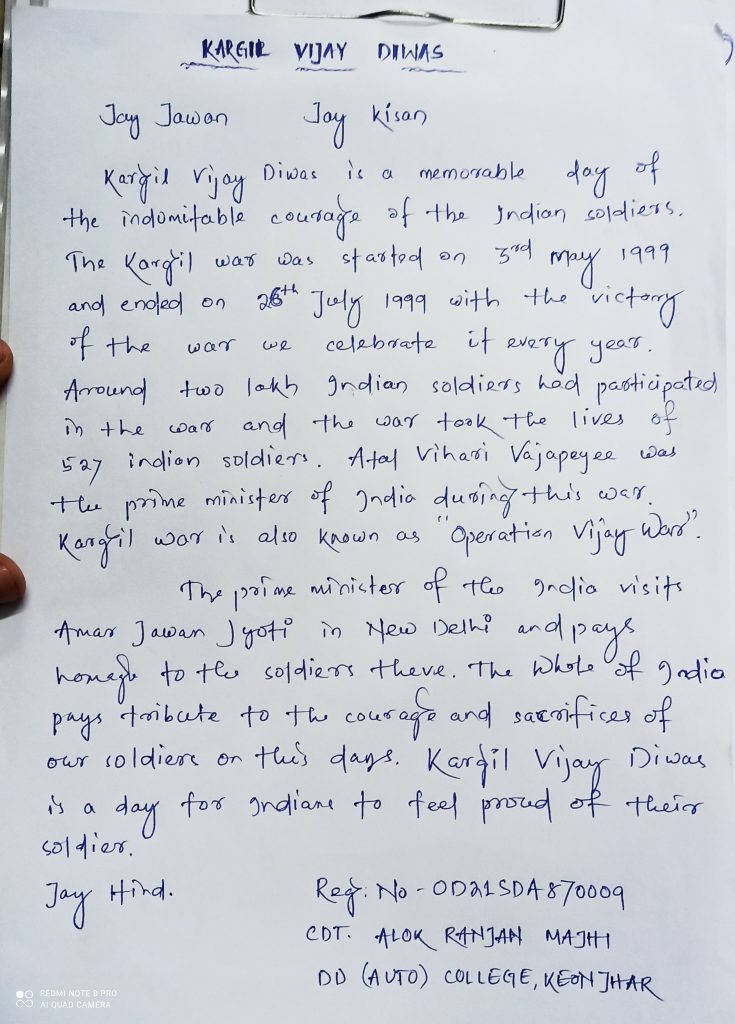 KARGIL VIJAY DIWAS
Jay Jawan Jay Kisan
Kargil Vijay Diwas is a memorable day of
the indomitable courage of the Indian soldiers.
The Kargil war was started on 3rd may 1999
and ended on 26th July 1999 with the victory
of the war we celebrate it every year.
Around two lakh Indian soldiers had participated
in the war and the war took the lives of
527 indian soldiers. Atal Vihari Vajapeyee was
the prime minister of India during this war.
Kargil war is also known as "Operation Vijay War".
The prime minister of the India visits
Amar Jawan Jyoti in New Delhi and pays
homage to the soldiers there. The Whole of India
pays tribute to the courage and sacrifices of
our soldiers on this days. Kargil Vijay Diwas
is a day for Indians to feel proud of their
soldier.
Jay Hind. Reg. No - OD21SDA870009
CDT. ALOK RANJAN MAJHI
DD (AUTO) COLLEGE, KEONJHAR
REDMI NOTE 8 PRO
AI QUAD CAMERA